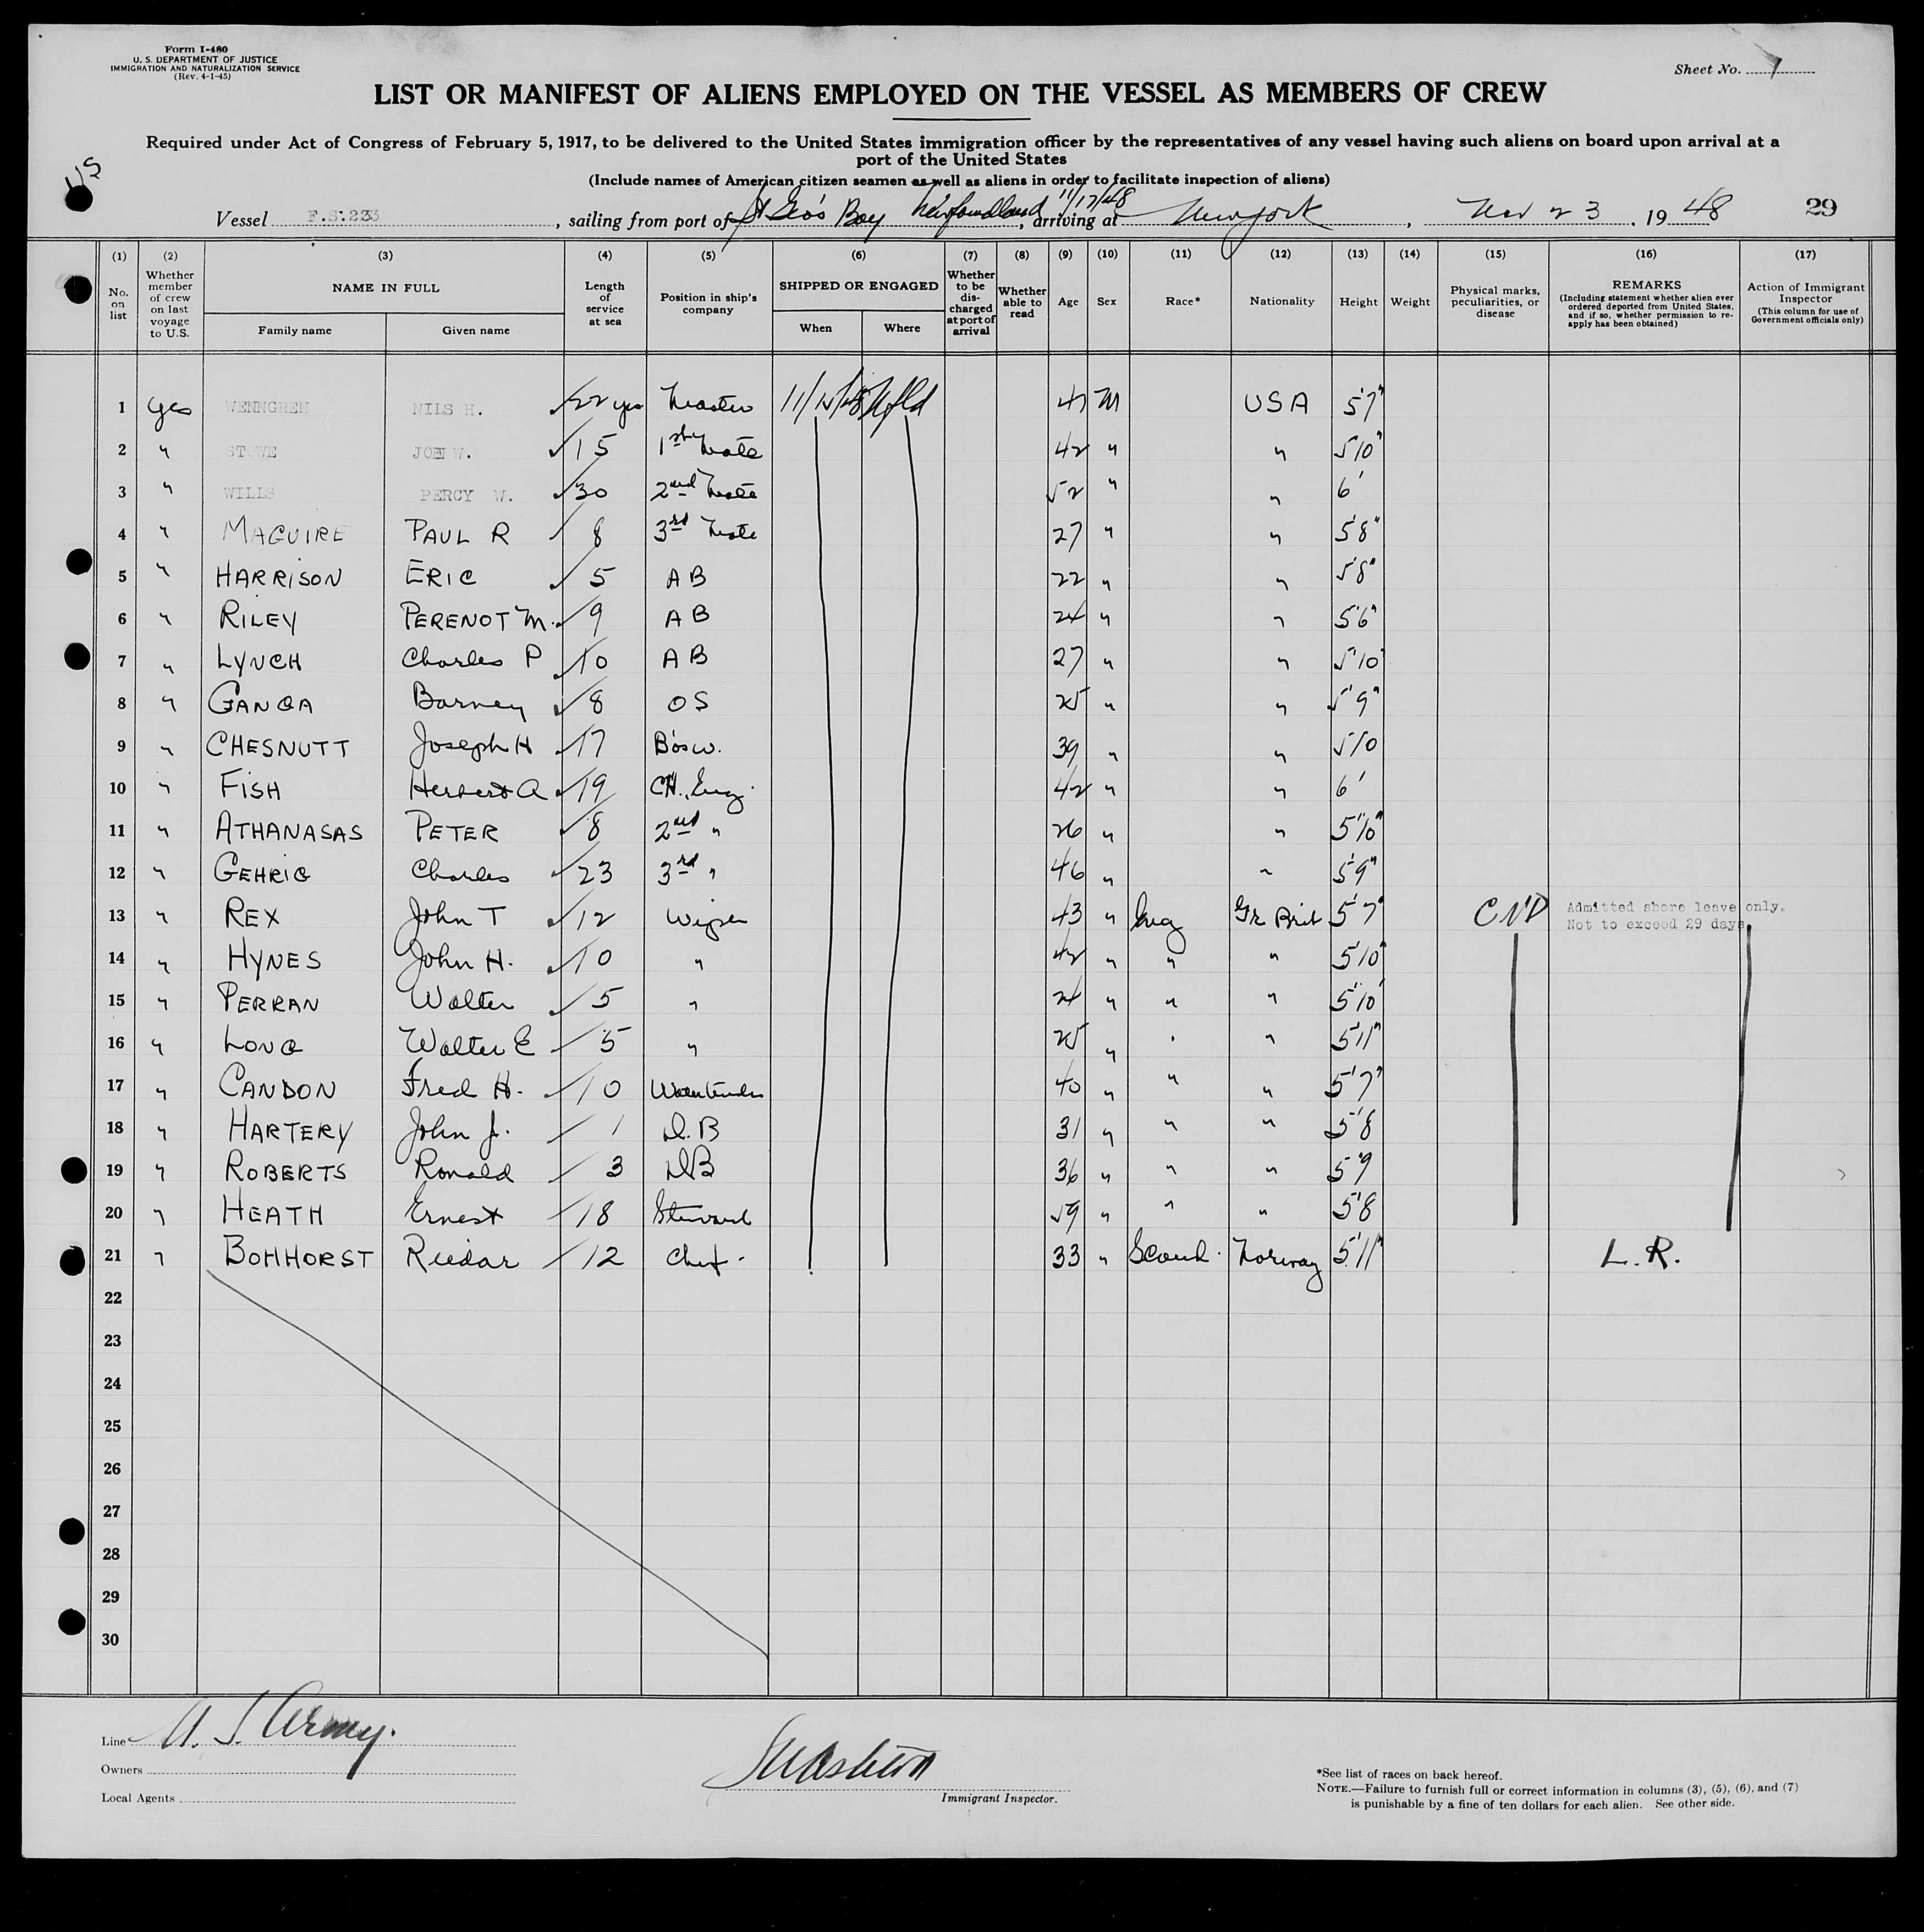 Form I-480
U. S. DEPARTMENT OF JUSTICE
IMMIGRATION AND NATURALIZATION SERVICE
(Rev. 4-1-45)
Sheet No.
LIST OR MANIFEST OF ALIENS EMPLOYED ON THE VESSEL AS MEMBERS OF CREW
Required under Act of Congress of February 5, 1917, to be delivered to the United States immigration officer by the representatives of any vessel having such aliens on board upon arrival at a
port of the United States
(Include names of American citizen seamen as well as aliens in order to facilitate inspection of aliens)
US
11/17/48
Vessel F.S.233, sailing from port of St Geo's Bay Newfoundland, arriving at New York, Nov 23, 1948 29
(1) (2) (3) (4) (5) (6) (7) (8) (9) (10) (11) (12) (13) (14) (15) (16) (17)
No. on list
Whether member of crew on last voyage to U.S.
NAME IN FULL
Family name
Given name
Length of service at sea
Position in ship's company
SHIPPED OR ENGAGED
When
Where
Whether to be discharged at port of arrival
Whether able to read
Age
Sex
Race*
Nationality
Height
Weight
Physical marks, peculiarities, or disease
REMARKS
(Including statement whether alien ever ordered deported from United States, and if so, whether permission to re-apply has been obtained)
Action of Immigrant Inspector
(This column for use of Government officials only)
1 Yes WENNGREN NILS H. 22 yrs Master 11/15/48 Nfld 47 M USA 5'7"
2 " STOWE JOHN W. 15 1st Mate 42 " " 5'10"
3 " WILLS PERCY W. 30 2nd Mate 52 " " 6'
4 " MAGUIRE PAUL R 8 3rd Mate 27 " " 5'8"
5 " HARRISON ERIC 5 AB 22 " " 5'8"
6 " RILEY PERENOT M. 9 AB 24 " " 5'6"
7 " LYNCH Charles P 10 AB 27 " " 5'10"
8 " GANGA Barney 8 OS 25 " " 5'9"
9 " CHESNUTT Joseph H 17 Bosw. 39 " " 5'10
10 " FISH Herbert A 19 CH. Eng. 42 " " 6'
11 " ATHANASAS PETER 8 2nd " 26 " " 5'10"
12 " GEHRIG Charles 23 3rd " 46 " " 5'9"
13 " REX John T 12 Wiper 43 " Eng Gr Brit 5'7" CND Admitted shore leave only.
Not to exceed 29 days
14 " HYNES John H. 10 " 42 " " " 5'10"
15 " PERRAN Walter 5 " 24 " " " 5'10"
16 " LONG Walter E 5 " 25 " " " 5'11"
17 " CANDON Fred H. 10 Watertender 40 " " " 5'7"
18 " HARTERY John J. 1 D.B 31 " " " 5'8
19 " ROBERTS Ronald 3 DB 36 " " " 5'9
20 " HEATH Ernest 18 Steward 59 " " " 5'8
21 " BOHHORST Reidar 12 Chef. 33 " Scand. Norway 5'11" L.R.
22
23
24
25
26
27
28
29
30
Line U. S. Army.
Owners
Local Agents
Immigrant Inspector.
*See list of races on back hereof.
NOTE.—Failure to furnish full or correct information in columns (3), (5), (6), and (7)
is punishable by a fine of ten dollars for each alien. See other side.